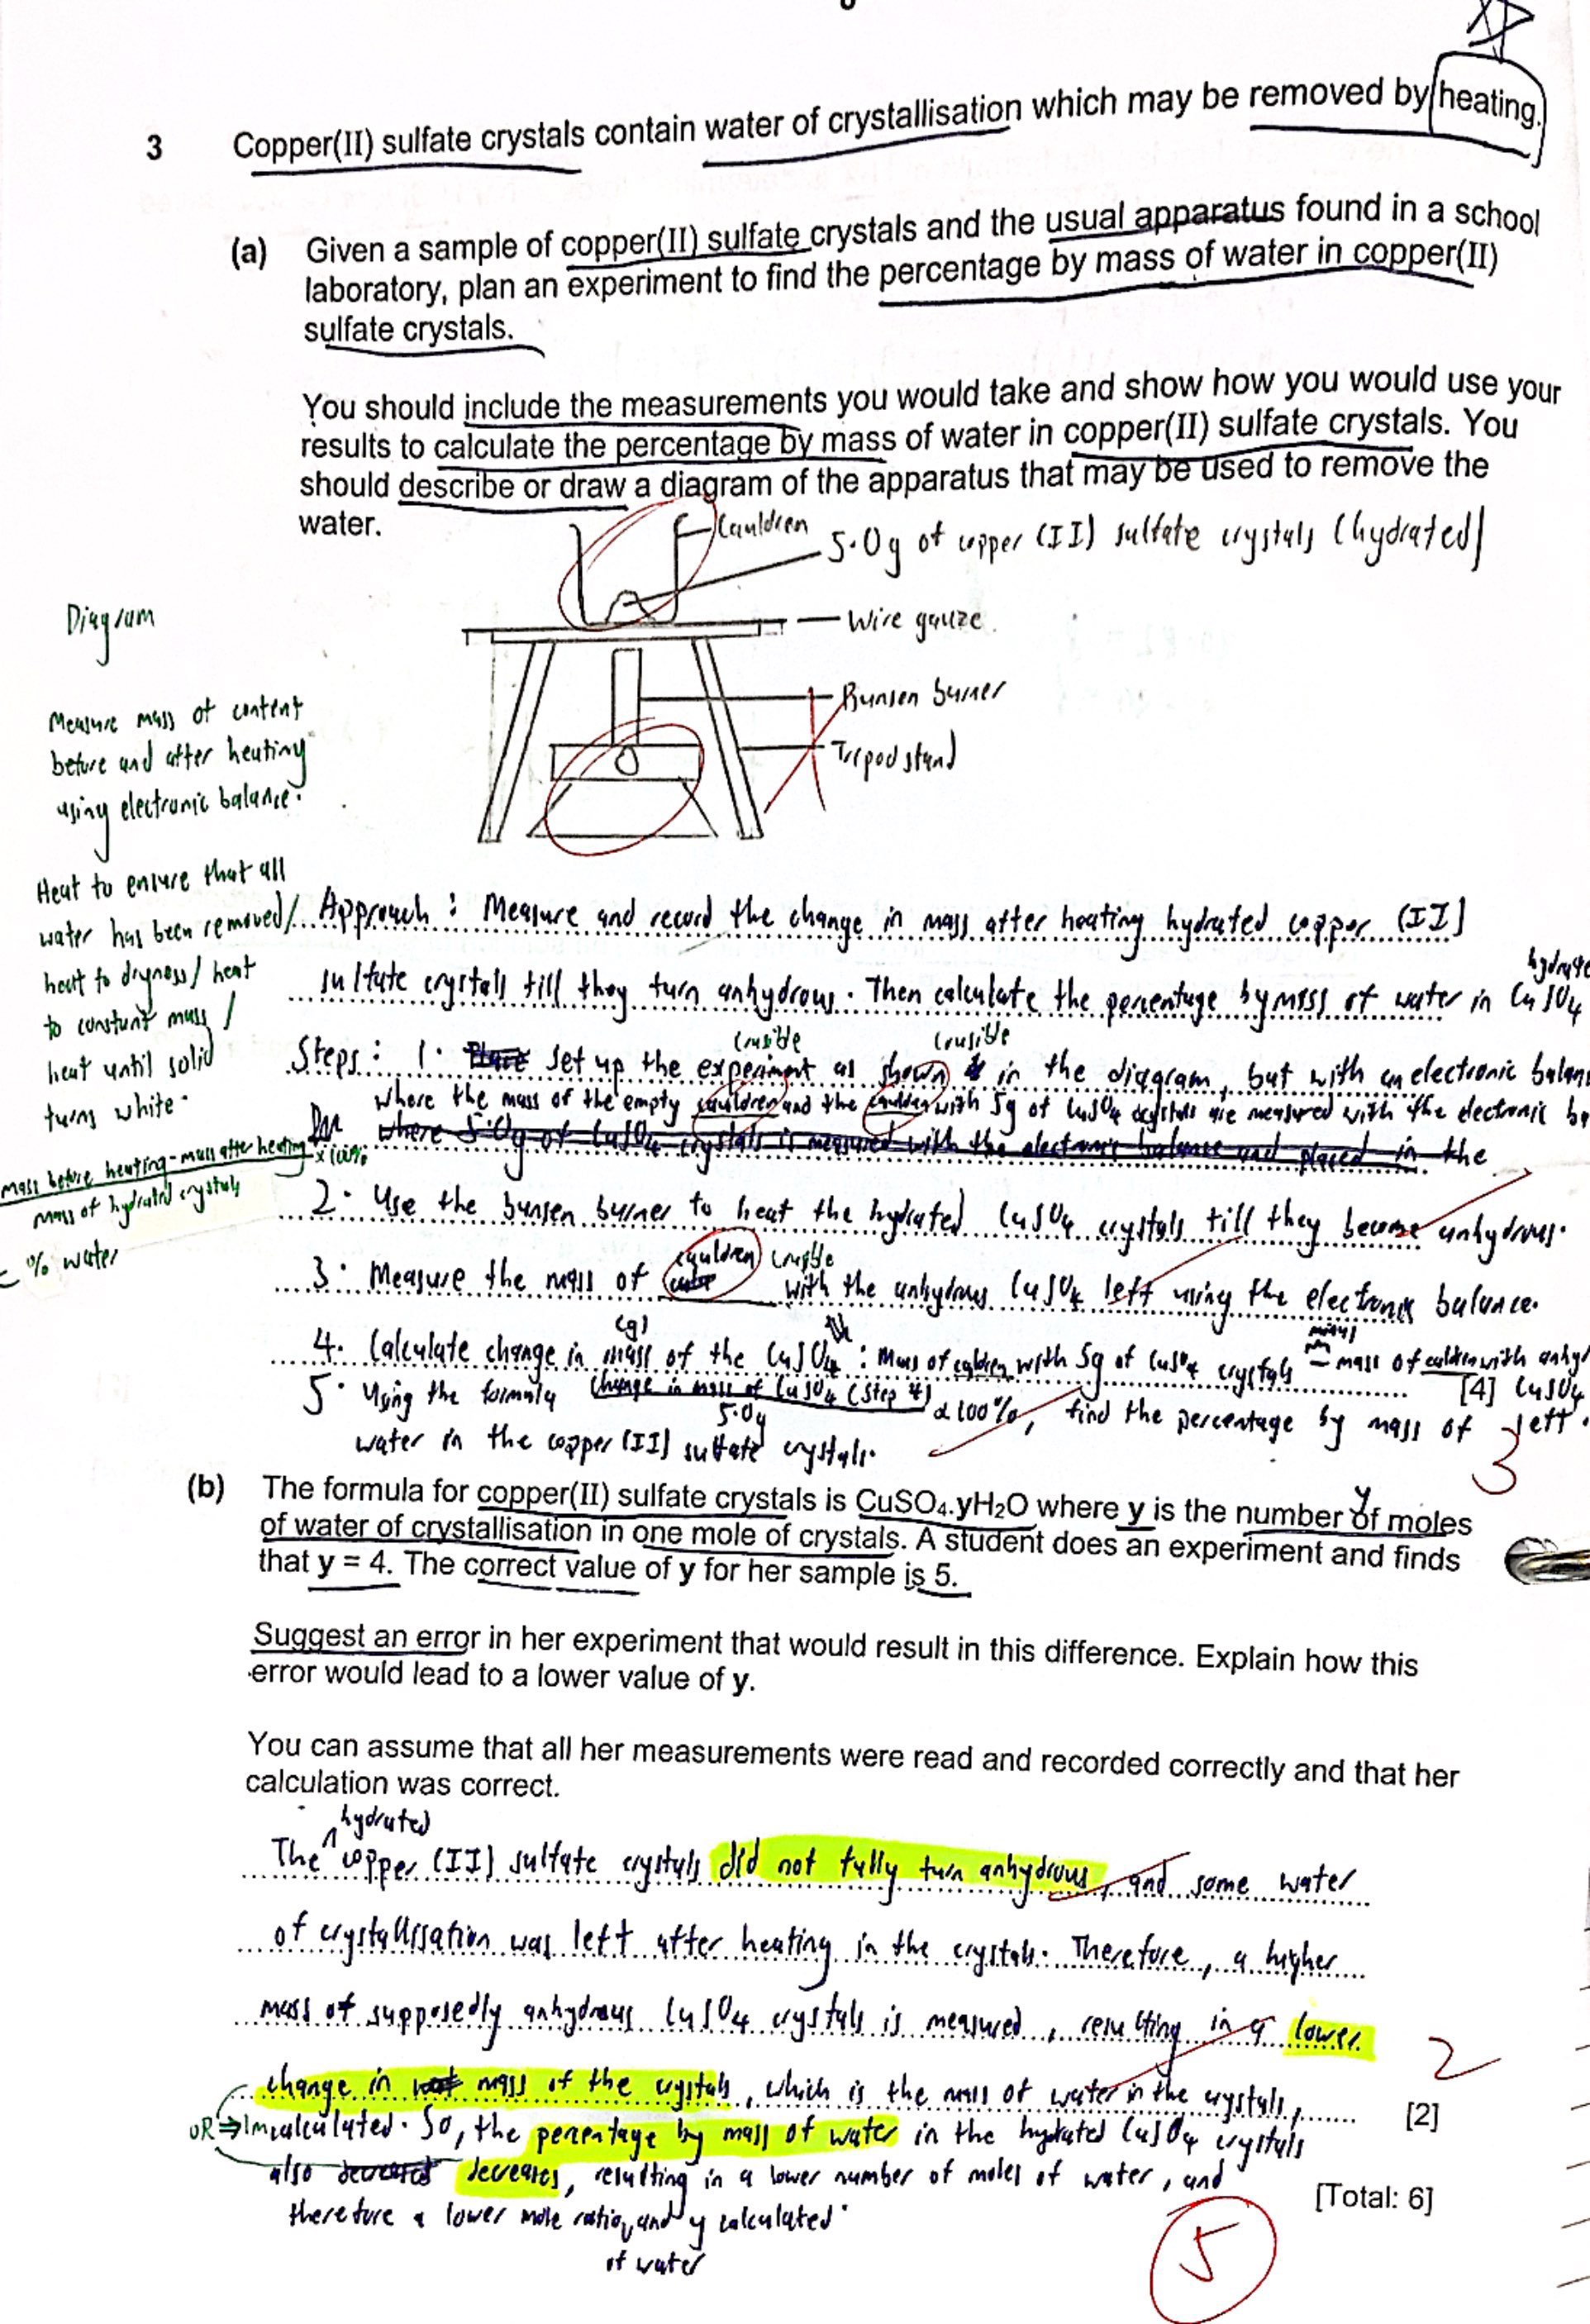 3 Copper(II) sulfate crystals contain water of crystallisation which may be removed by heating.
(a) Given a sample of copper(II) sulfate crystals and the usual apparatus found in a school
laboratory, plan an experiment to find the percentage by mass of water in copper(II)
sulfate crystals.
You should include the measurements you would take and show how you would use your
results to calculate the percentage by mass of water in copper(II) sulfate crystals. You
should describe or draw a diagram of the apparatus that may be used to remove the
water.
Cauldren
5.0g of copper (II) sulfate crystals (hydrated)
Wire gauze.
Bunsen burner
Tripod stand
Diagram
Measure mass of content
before and after heating
using electronic balance.
Heat to ensure that all
water has been removed/
heat to dryness/ heat
to constant mass /
heat until solid
turns white.
mass before heating - mass after heating x 100%
mass of hydrated crystals
= % water
Approach : Measure and record the change in mass after heating hydrated copper (II)
hydrate
sulfate crystals till they turn anhydrous. Then calculate the percentage by mass of water in CuSO4
crusible crusible
Steps : 1. set up the experiment as shown in the diagram, but with an electronic balan
where the mass of the empty cauldren and the cauldren with 5g of CuSO4 crystals are measured with the electronic b
where 5.0g of CuSO4 crystals is measured with the electronic balance and placed in the
2. Use the bunsen burner to heat the hydrated CuSO4 crystals till they become anhydrous.
cauldren crusible
3. Measure the mass of with the anhydrous CuSO4 left using the electronic balance.
(g) minus
4. Calculate change in mass of the CuSO4 : Mass of cauldren with 5g of CuSO4 crystals – mass of cauldren with anhy
[4] CuSO4
5. Using the formula change in mass of CuSO4 (Step 4) x 100%, find the percentage by mass of left.
5.0g
water in the copper (II) sulfate crystals.
3
(b) The formula for copper(II) sulfate crystals is CuSO4.yH2O where y is the number of moles
y
of water of crystallisation in one mole of crystals. A student does an experiment and finds
that y = 4. The correct value of y for her sample is 5.
Suggest an error in her experiment that would result in this difference. Explain how this
error would lead to a lower value of y.
You can assume that all her measurements were read and recorded correctly and that her
calculation was correct.
hydrated
The copper (II) sulfate crystals did not fully turn anhydrous, and some water
of crystallisation was left after heating in the crystals. Therefore, a higher
mass of supposedly anhydrous CuSO4 crystals is measured, resulting in a lower
2
change in mass of the crystals, which is the mass of water in the crystals,
[2]
OR ⇒ calculated. So, the percentage by mass of water in the hydrated CuSO4 crystals
also decreases, resulting in a lower number of moles of water, and
[Total: 6]
therefore a lower mole ratio, and y calculated.
of water
5